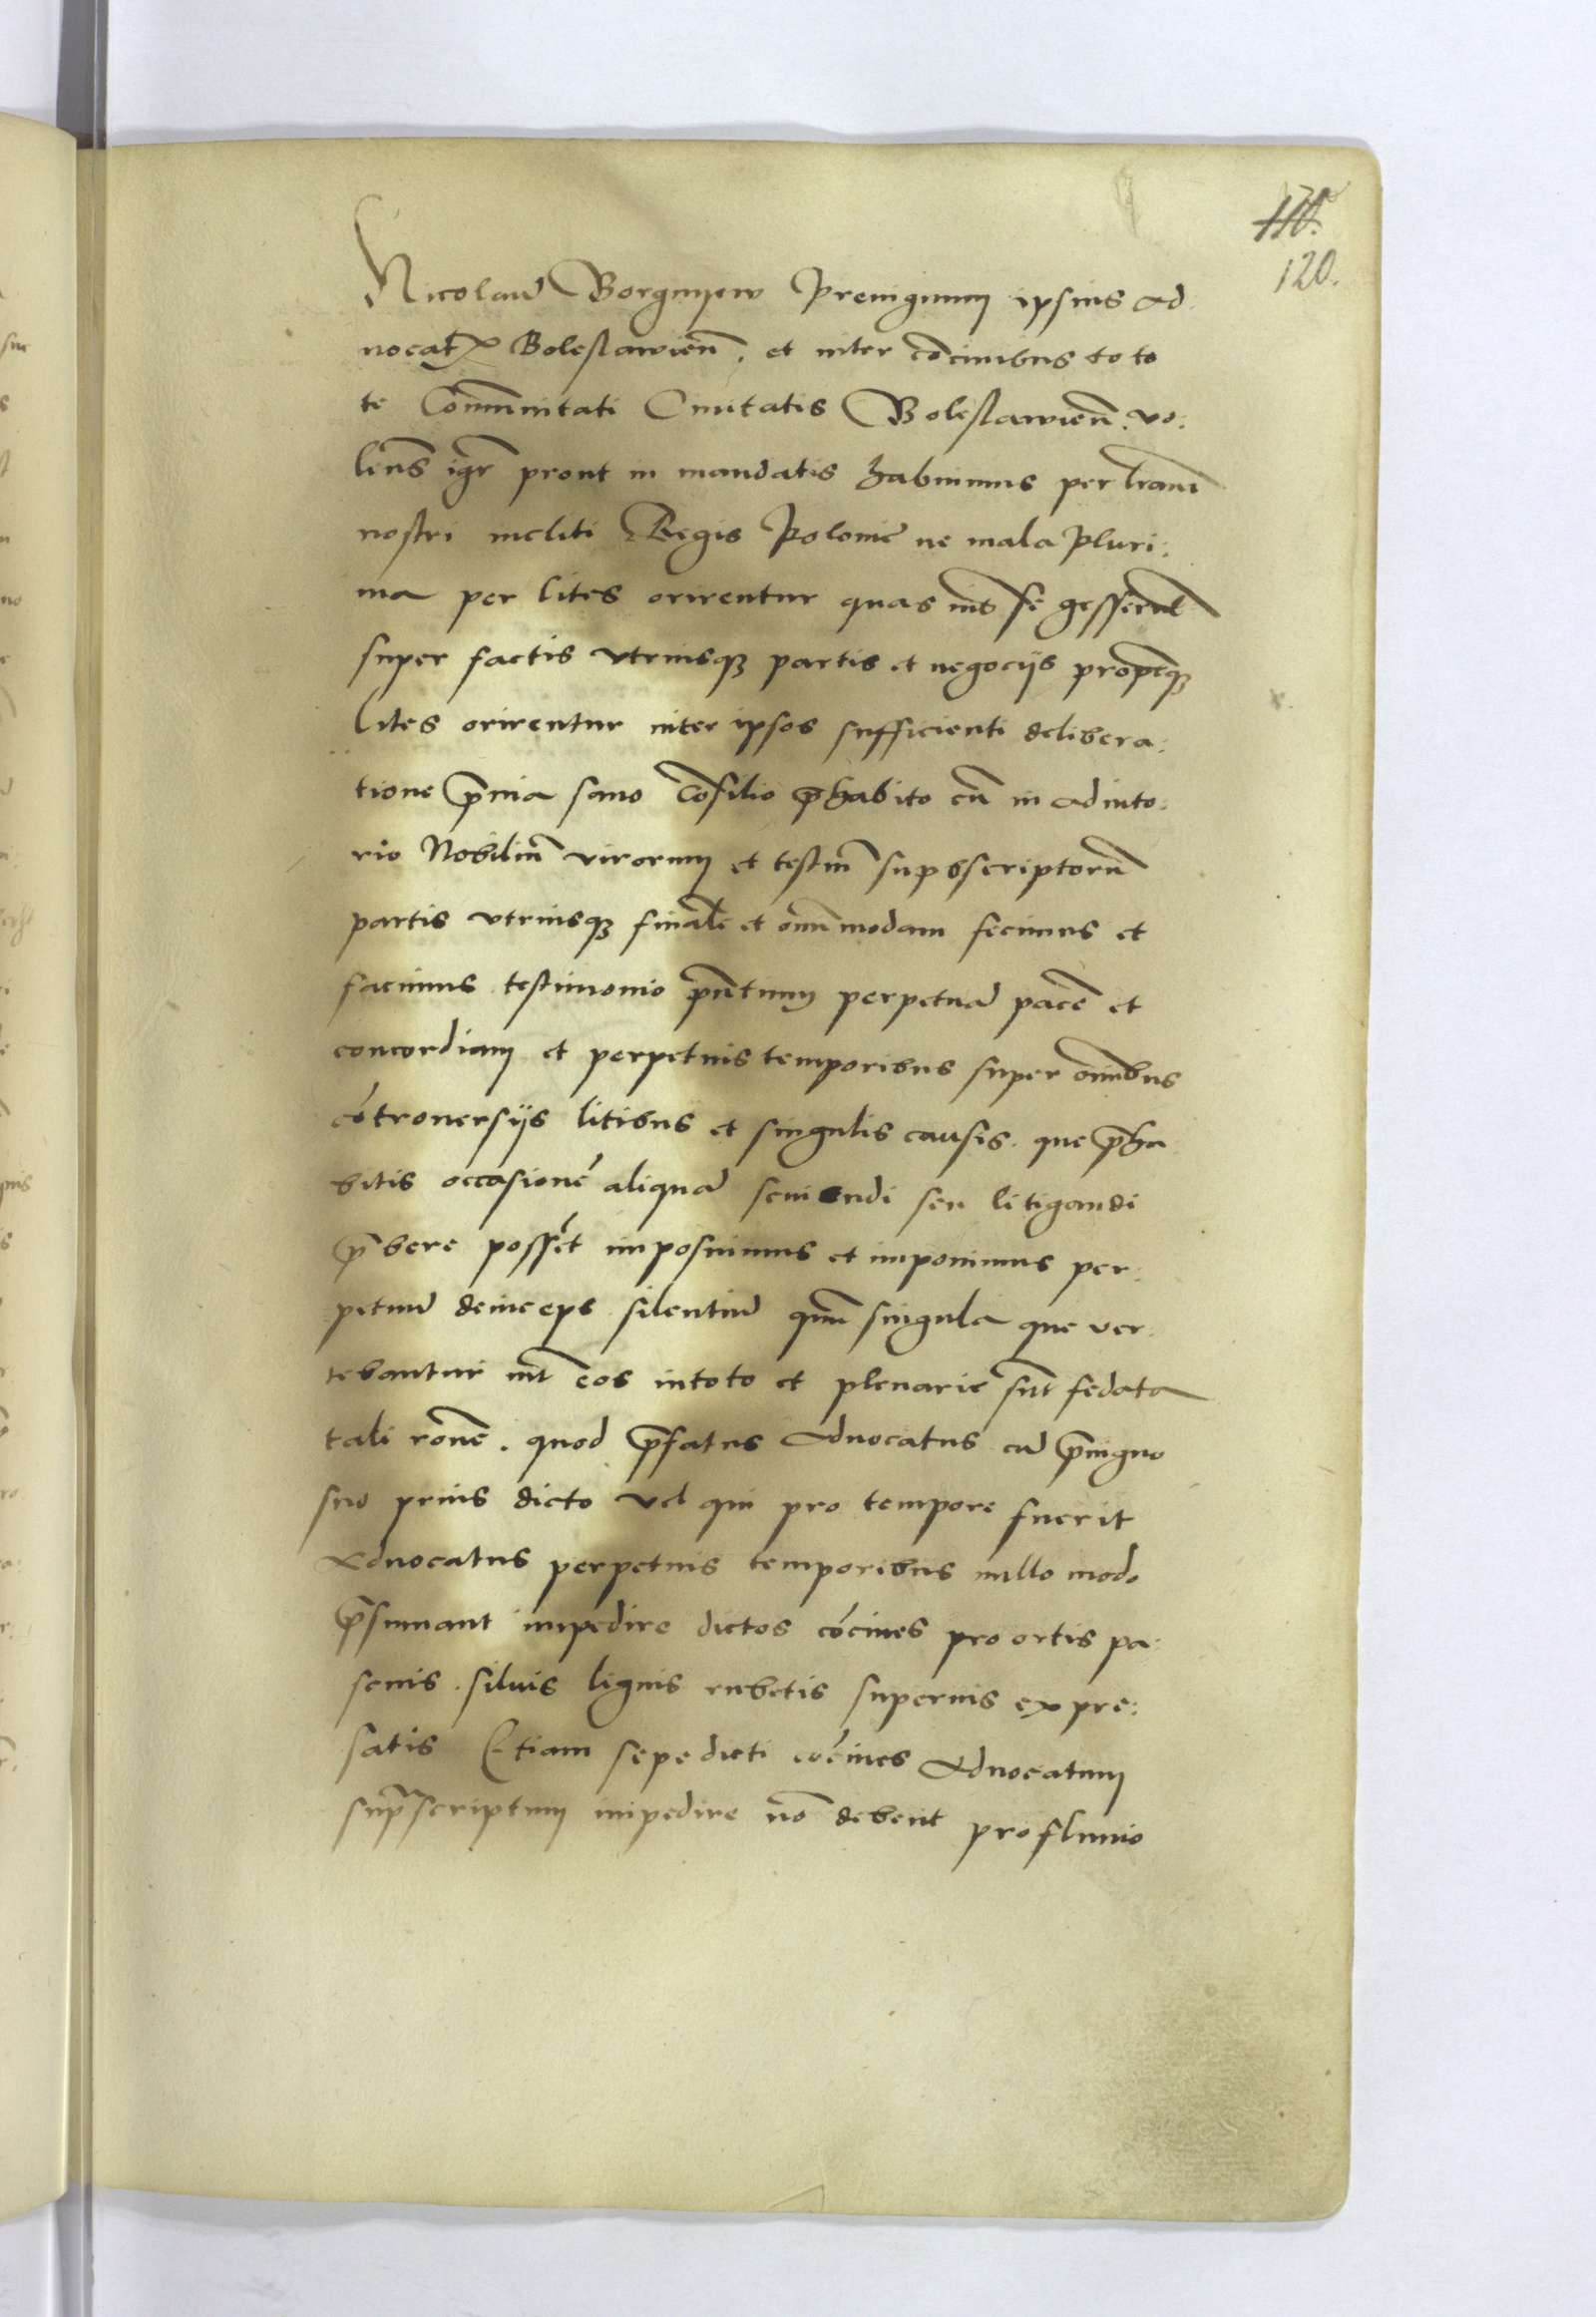 120.
Nicolau᷄ Borgnyew Preuignum ipsius Ad
uocat Boleslawien̄. et inter co᷄ciuibus to to
te Com᷄unitati Ciuitatis Boleslawien̄. vo:
lens igr̄ prout in mandatis habuimus per
nostri incliti Regis Polonie ne mala pluri:
ma per lites orirentur quas int̄ se gesserūt
super factis vtriusqꝫ partis et negocijs
lites orirentur inter ipsos sufficienti delibera:
tione p̄uia sano co᷄silio p̄habito cū in adiuto:
rio Nobiliū virorum et testiū supbscriptorū
partis vtriusqꝫ finalē et om̄imodam fecimus et
facimus testimonio pn̄tium perpetuā pacē et
concordiam et perpetuis temporibus super om̄ibus
cōtrouersijs litibus et singulis causis. que p̄ha
bitis occasionē aliquā seuiendi seu litigandi
p̄bere possēt imposuimus et imponimus per:
petuū deinceps silentiū qm̄ singula que ver:
tebantur int̄ eos intoto et plenarie sūt sedata
tali ronē. quod p̄fatus Aduocatus cū p̄uigno
suo prius dicto vel qui pro tempore fuerit
Aduocatus perpetuis temporibus nullo modo
p̄sumant impedire dictos cōciues pro ortis pa:
scuis. siluis lignis rubetis superius expre:
satis Etiam sepe dicti cōciues Aduocatum
supr̄ascriptum impedire nō debent pro fluuio